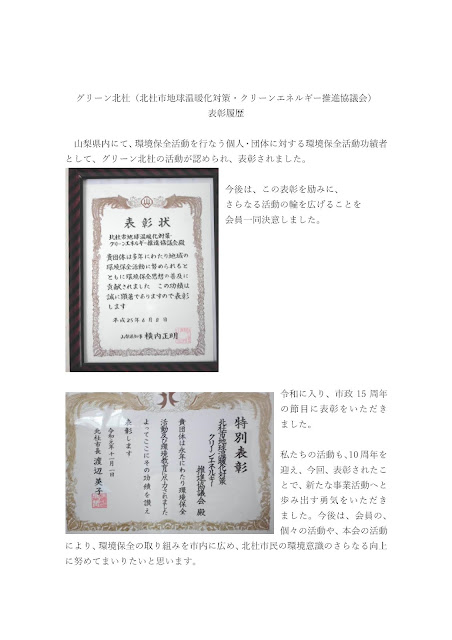 グリーン北杜（北杜市地球温暖化対策・クリーンエネルギー推進協議会）
表彰履歴
山梨県内にて、環境保全活動を行なう個人・団体に対する環境保全活動功績者
として、グリーン北杜の活動が認められ、表彰されました。
今後は、この表彰を励みに、
さらなる活動の輪を広げることを
会員一同決意しました。
表彰状
北杜市地球温暖化対策・
クリーンエネルギー推進協議会殿
貴団体は多年にわたり地域の
環境保全活動に努められると
ともに環境保全思想の普及に
貢献されました この功績は
誠に顕著でありますので表彰
します
平成25年6月8日
山梨県知事 横内正明
令和に入り、市政 15 周年
の節目に表彰をいただき
ました。
私たちの活動も、10 周年を
迎え、今回、表彰されたこ
とで、新たな事業活動へと
歩み出す勇気をいただき
ました。今後は、会員の、
個々の活動や、本会の活動
により、環境保全の取り組みを市内に広め、北杜市民の環境意識のさらなる向上
に努めてまいりたいと思います。
特別表彰
北杜市地球温暖化対策
クリーンエネルギー
推進協議会 殿
貴団体は永年にわたり環境保全
活動及び環境教育に尽力されました
よってここにその功績を讃え
表彰します
令和元年十一月一日
北杜市長 渡辺英子